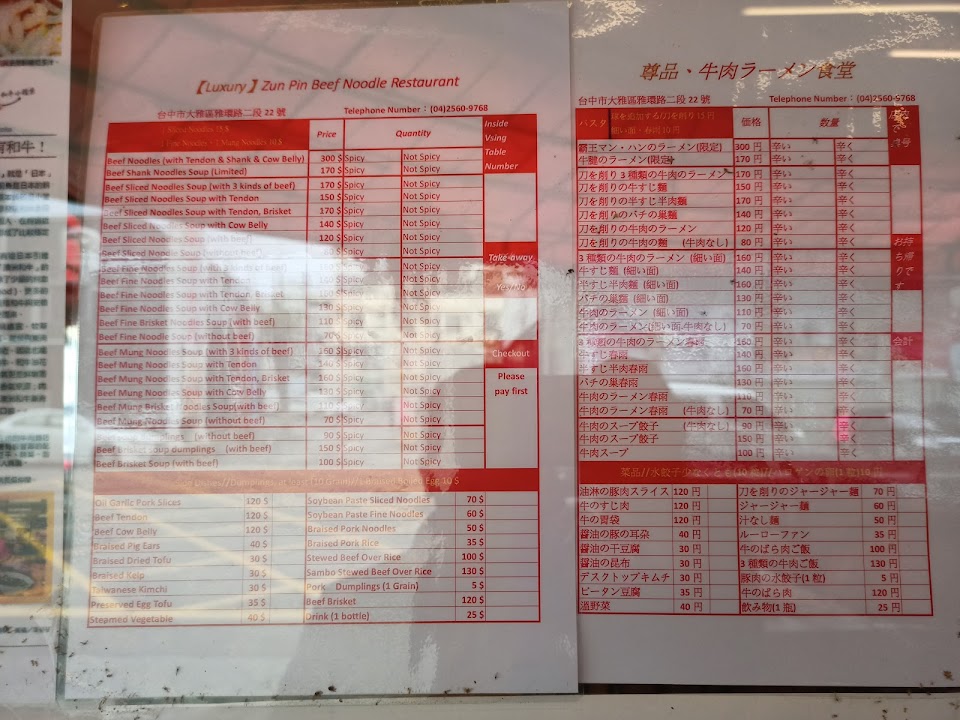 【Luxury】Zun Pin Beef Noodle Restaurant
台中市大雅區雅環路二段 22 號 Telephone Number：(04)2560-9768
Price Quantity
Inside
Vsing
Table
Number
Beef Noodles (with Tendon & Shank & Cow Belly) 300 $ Spicy Not Spicy
Beef Shank Noodles Soup (Limited) 170 $ Spicy Not Spicy
Beef Sliced Noodles Soup (with 3 kinds of beef) 170 $ Spicy Not Spicy
Beef Sliced Noodles Soup with Tendon 150 $ Spicy Not Spicy
Beef Sliced Noodles Soup with Tendon, Brisket 170 $ Spicy Not Spicy
Beef Sliced Noodles Soup with Cow Belly 140 $ Spicy Not Spicy
Beef Sliced Noodles Soup (with beef) 120 $ Spicy Not Spicy
Beef Sliced Noodles Soup (without beef) Spicy Not Spicy
Beef Fine Noodles Soup (with 3 kinds of beef) Spicy Not Spicy
Beef Fine Noodles Soup with Tendon Spicy Not Spicy
Beef Fine Noodles Soup with Tendon, Brisket Spicy Not Spicy
Beef Fine Noodles Soup with Cow Belly 130 $ Spicy Not Spicy
Beef Fine Brisket Noodles Soup (with beef) 110 $ Spicy Not Spicy
Beef Fine Noodles Soup (without beef) 70 $ Spicy Not Spicy
Beef Mung Noodles Soup (with 3 kinds of beef) 160 $ Spicy Not Spicy
Beef Mung Noodles Soup with Tendon 140 $ Spicy Not Spicy
Beef Mung Noodles Soup with Tendon, Brisket 160 $ Spicy Not Spicy
Beef Mung Noodles Soup with Cow Belly 130 $ Spicy Not Spicy
Beef Mung Brisket Noodles Soup(with beef) Spicy Not Spicy
Beef Mung Noodles Soup (without beef) 70 $ Spicy Not Spicy
dumplings (without beef) 90 $ Spicy Not Spicy
Beef Brisket soup dumplings (with beef) 150 $ Spicy Not Spicy
Beef Brisket Soup (with beef) 100 $ Spicy Not Spicy
Take-away
Yes/No
Checkout
Please
pay first
Oil Garlic Pork Slices 120 $ Soybean Paste Sliced Noodles 70 $
Beef Tendon 120 $ Soybean Paste Fine Noodles 60 $
Beef Cow Belly 120 $ Braised Pork Noodles 50 $
Braised Pig Ears 40 $ Braised Pork Rice 35 $
Braised Dried Tofu 30 $ Stewed Beef Over Rice 100 $
Braised Kelp 30 $ Sambo Stewed Beef Over Rice 130 $
Taiwanese Kimchi 30 $ Pork Dumplings (1 Grain) 5 $
Preserved Egg Tofu 35 $ Beef Brisket 120 $
Steamed Vegetable 40 $ Drink (1 bottle) 25 $
尊品、牛肉ラーメン食堂
台中市大雅區雅環路二段 22 號 Telephone Number：(04)2560-9768
パスタ 価格 数量
霸王マン・ハンのラーメン(限定) 300 円 辛い 辛く
牛腱のラーメン(限定) 170 円 辛い 辛く
刀を削り 3 種類の牛肉のラーメン 170 円 辛い 辛く
刀を削りの牛すじ麺 150 円 辛い 辛く
刀を削りの半すじ半肉麺 170 円 辛い 辛く
刀を削りのバチの巣麺 140 円 辛い 辛く
刀を削りの牛肉のラーメン 120 円 辛い 辛く
刀を削りの牛肉の麺 (牛肉なし) 80 円 辛い 辛く
3 種類の牛肉のラーメン (細い面) 160 円 辛い 辛く
牛すじ麺 (細い面) 140 円 辛い 辛く
半すじ半肉麺 (細い面) 160 円 辛い 辛く
バチの巣麺 (細い面) 130 円 辛い 辛く
牛肉のラーメン (細い面) 110 円 辛い 辛く
牛肉のラーメン(細い面-牛肉なし) 70 円 辛い 辛く
3 種類の牛肉のラーメン春雨 160 円 辛い 辛く
牛すじ春雨 140 円 辛い 辛く
半すじ半肉春雨 160 円 辛い 辛く
バチの巣春雨 130 円 辛い 辛く
牛肉のラーメン春雨 110 円 辛い 辛く
牛肉のラーメン春雨 (牛肉なし) 70 円 辛い 辛く
牛肉のスープ餃子 (牛肉なし) 90 円 辛い 辛く
牛肉のスープ餃子 150 円 辛い 辛く
牛肉スープ 100 円 辛い 辛く
お持
ち帰
りで
す
会計
油淋の豚肉スライス 120 円 刀を削りのジャージャー麺 70 円
牛のすじ肉 120 円 ジャージャー麺 60 円
牛の胃袋 120 円 汁なし麺 50 円
醤油の豚の耳朶 40 円 ルーローファン 35 円
醤油の干豆腐 30 円 牛のばら肉ご飯 100 円
醤油の昆布 30 円 3 種類の牛肉ご飯 130 円
デスクトップキムチ 30 円 豚肉の水餃子(1 粒) 5 円
ピータン豆腐 35 円 牛のばら肉 120 円
温野菜 40 円 飲み物(1 瓶) 25 円